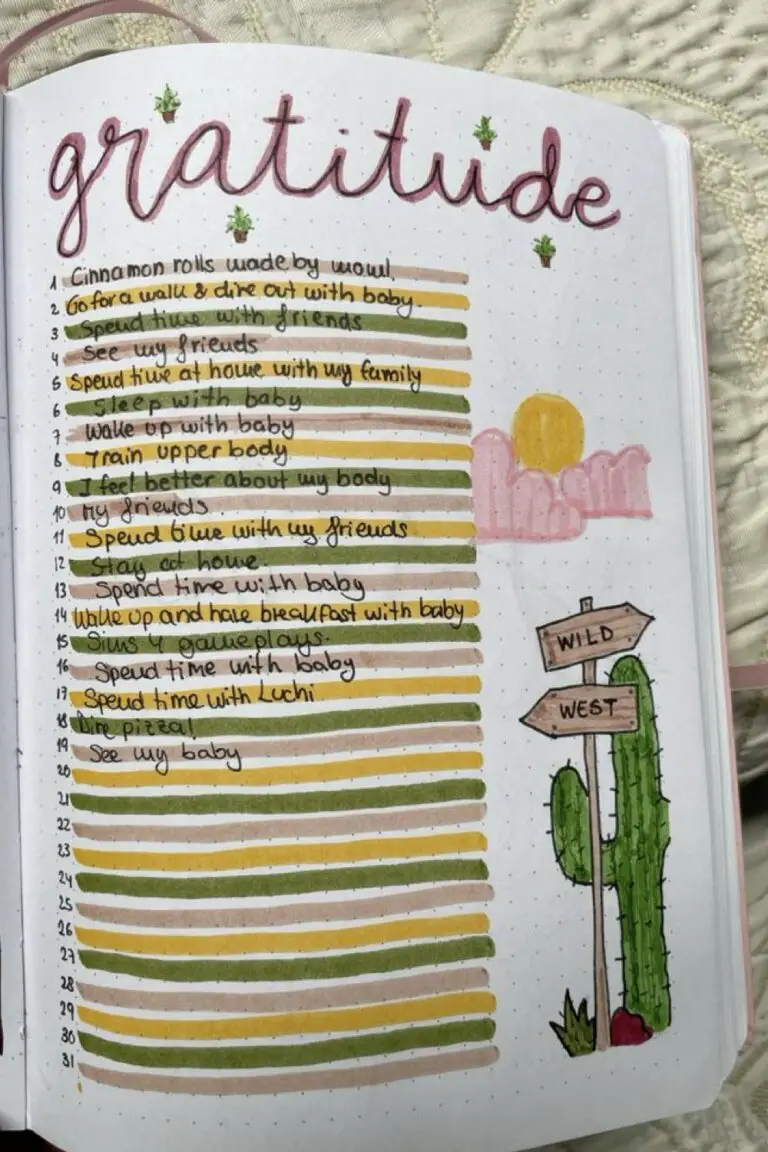 gratitude
1 Cinnamon rolls made by mowl.
2 Go for a walk & dire out with baby.
3 Spend time with friends
4 See my friends
5 Spend time at home with my family
6 Sleep with baby
7 Wake up with baby
8 Train upper body
9 I feel better about my body
10 My friends
11 Spend time with my friends
12 Stay at home.
13 Spend time with baby
14 Wake up and have breakfast with baby
15 Sims 4 gameplays.
16 Spend time with baby
17 Spend time with Luchi
18 Dire pizza!
19 See my baby
20
21
22
23
24
25
26
27
28
29
30
31
WILD
WEST